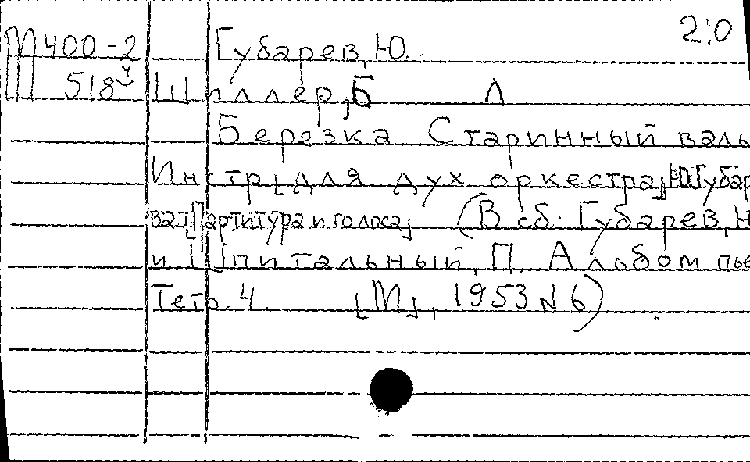 2:0
М400-2 Губарев, Ю.
Ш 518 Шиллер, Б Л
Березка Старинный валь
Инстр[для дух оркестра] Ю. Губар
ва. [Партитура и голоса] (В сб: Губарев, Ю
и Шпитальный, П. Альбом пье
Тетр. 4 [М], 1953 №6)